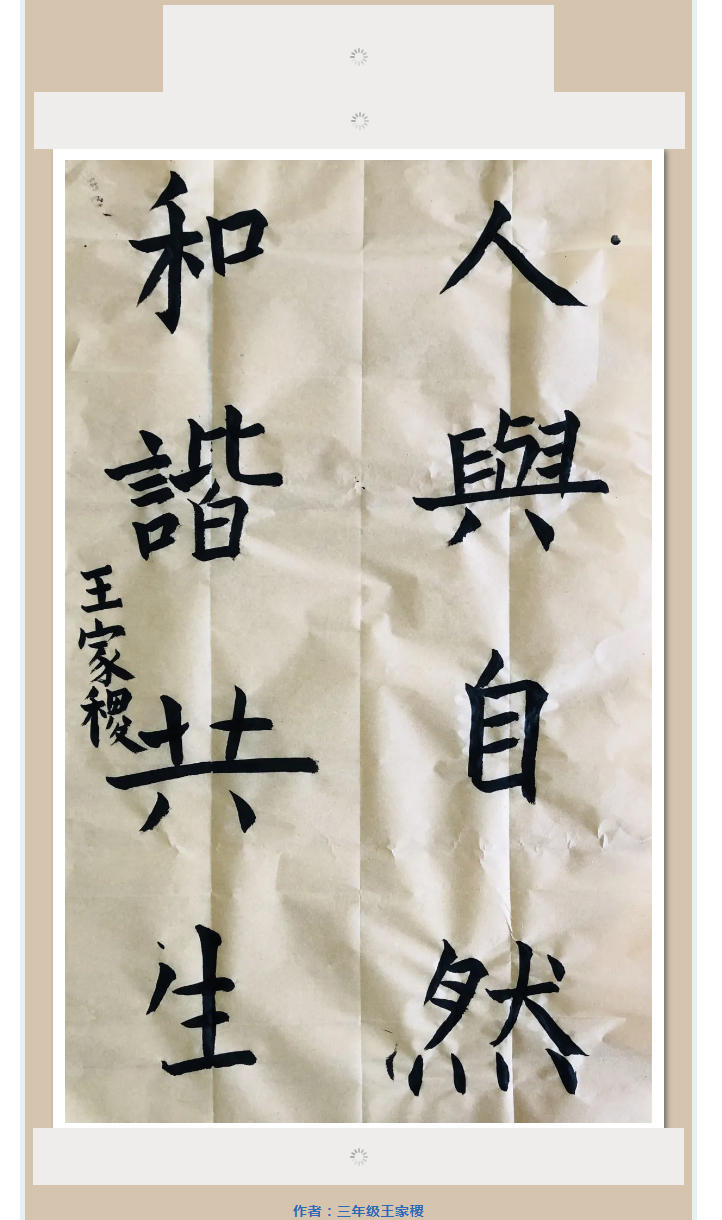 人與自然
和諧共生
王家稷
作者：三年级王家稷